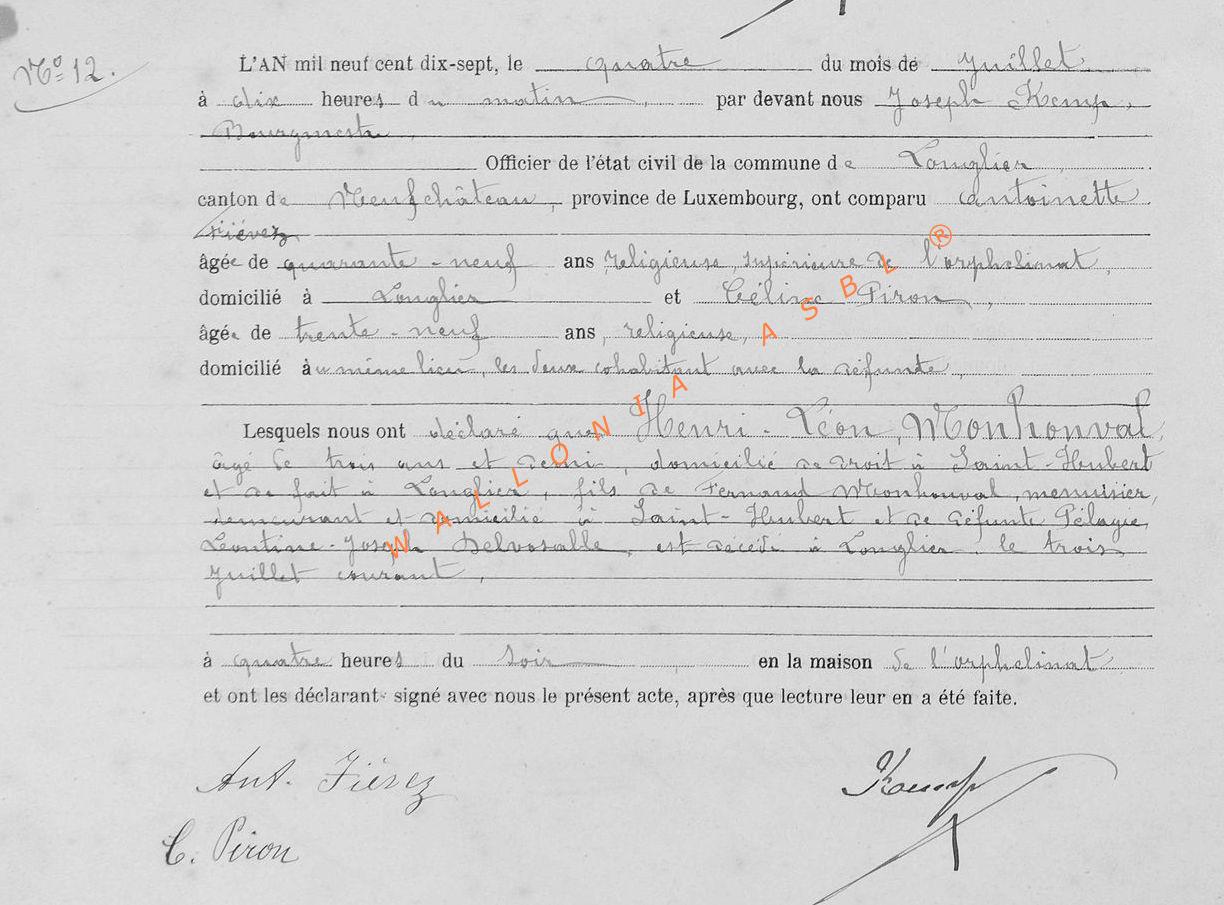 N° 12.
L'AN mil neuf cent dix-sept, le quatre du mois de Juillet
à dix heures du matin, par devant nous Joseph Kemp,
Bourgmestre,
Officier de l'état civil de la commune de Longlier
canton de Neufchâteau, province de Luxembourg, ont comparu Antoinette
Fiévez
âgée de quarante-neuf ans religieuse, supérieure de l'orphelinat,
domicilié à Longlier et Céline Piron,
âgée de trente-neuf ans, religieuse,
domicilié au même lieu, les deux cohabitant avec la défunte,
Lesquels nous ont déclaré que Henri-Léon, Monhonval,
âgé de trois ans et demi, domicilié de droit à Saint-Hubert
et de fait à Longlier, fils de Fernand Monhonval, menuisier,
demeurant et domicilié à Saint-Hubert et de défunte Pélagie
Léontine-Joseph Delvosalle, est décédé à Longlier le trois
Juillet courant,
à quatre heures du soir, en la maison de l'orphelinat
et ont les déclarant signé avec nous le présent acte, après que lecture leur en a été faite.
Ant. Fiévez
Kemp
C. Piron
WALLONIA ASBL®